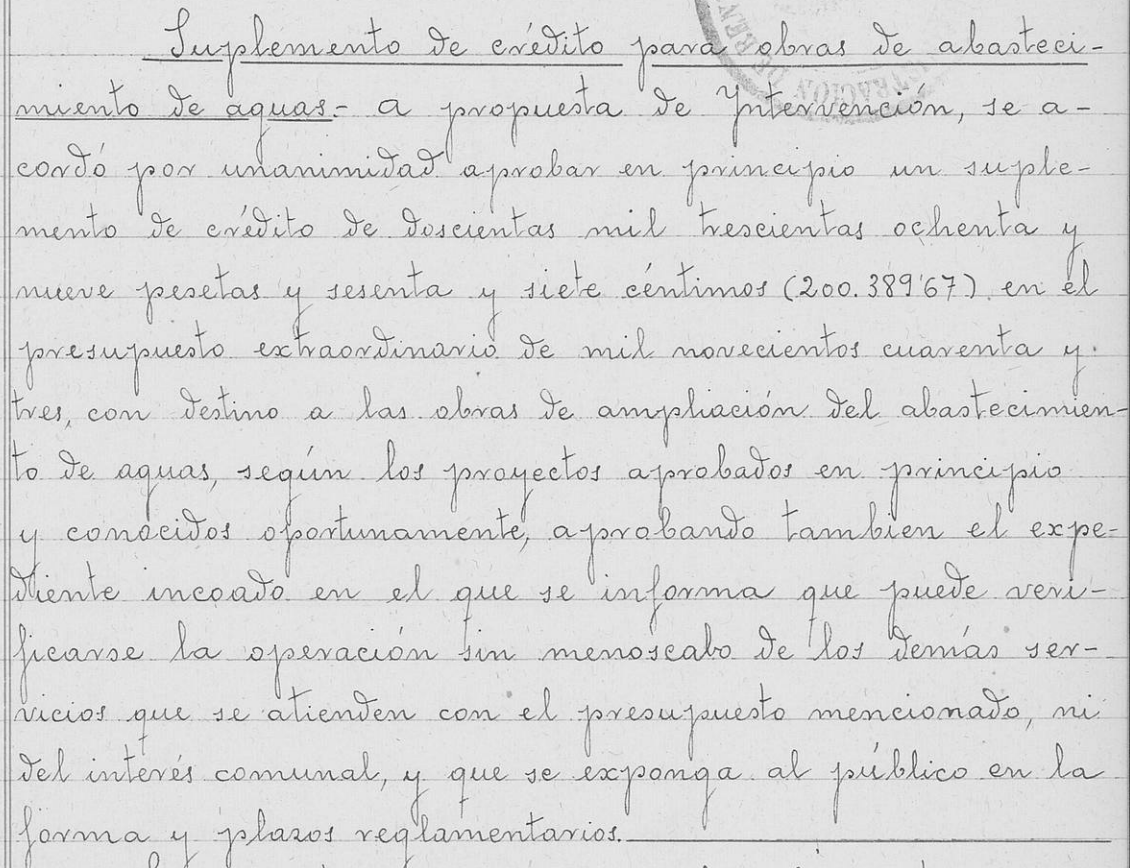 Suplemento de crédito para obras de abasteci-
miento de aguas.- a propuesta de Yntervención, se a-
cordó por unanimidad aprobar en principio un suple-
mento de crédito de doscientas mil trescientas ochenta y
nueve pesetas y sesenta y siete céntimos (200.389'67) en el
presupuesto extraordinario de mil novecientos cuarenta y
tres, con destino a las obras de ampliación del abastecimien-
to de aguas, según los proyectos aprobados en principio
y conocidos oportunamente, aprobando tambien el expe-
diente incoado en el que se informa que puede veri-
ficarse la operación sin menoscabo de los demás ser-
vicios que se atienden con el presupuesto mencionado, ni
del interés comunal, y que se exponga al público en la
forma y plazos reglamentarios.